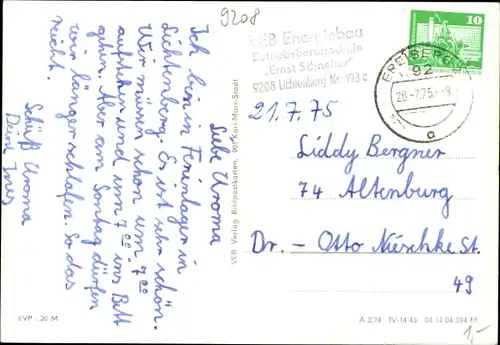 9208
Liebe Uroma
Ich bin in Ferienlager in
Lichtenberg. Es ist sehr schön.
Wir müssen schon um 7 00
aufstehen und um 7 00 ins Bett
gehen. Aber am Sontag dürfen
wir länger schlafen. So das
reicht.
Schüß Uroma
Dein
VEB Verlag Bildpostkarten, 901 Karl-Marx-Stadt
EVP -,20 M
VEB Energiebau
Betriebsberufsschule
„Ernst Schneller"
9208 Lichtenberg Nr. 193 c
FREIBERG
92
20.-7.75.-9
a
10
21.7.75
Liddy Bergner
74 Altenburg
Dr.- Otto Nieschke St.
49
A 3/74 IV-14-43 04 14 04 294 M
1,-